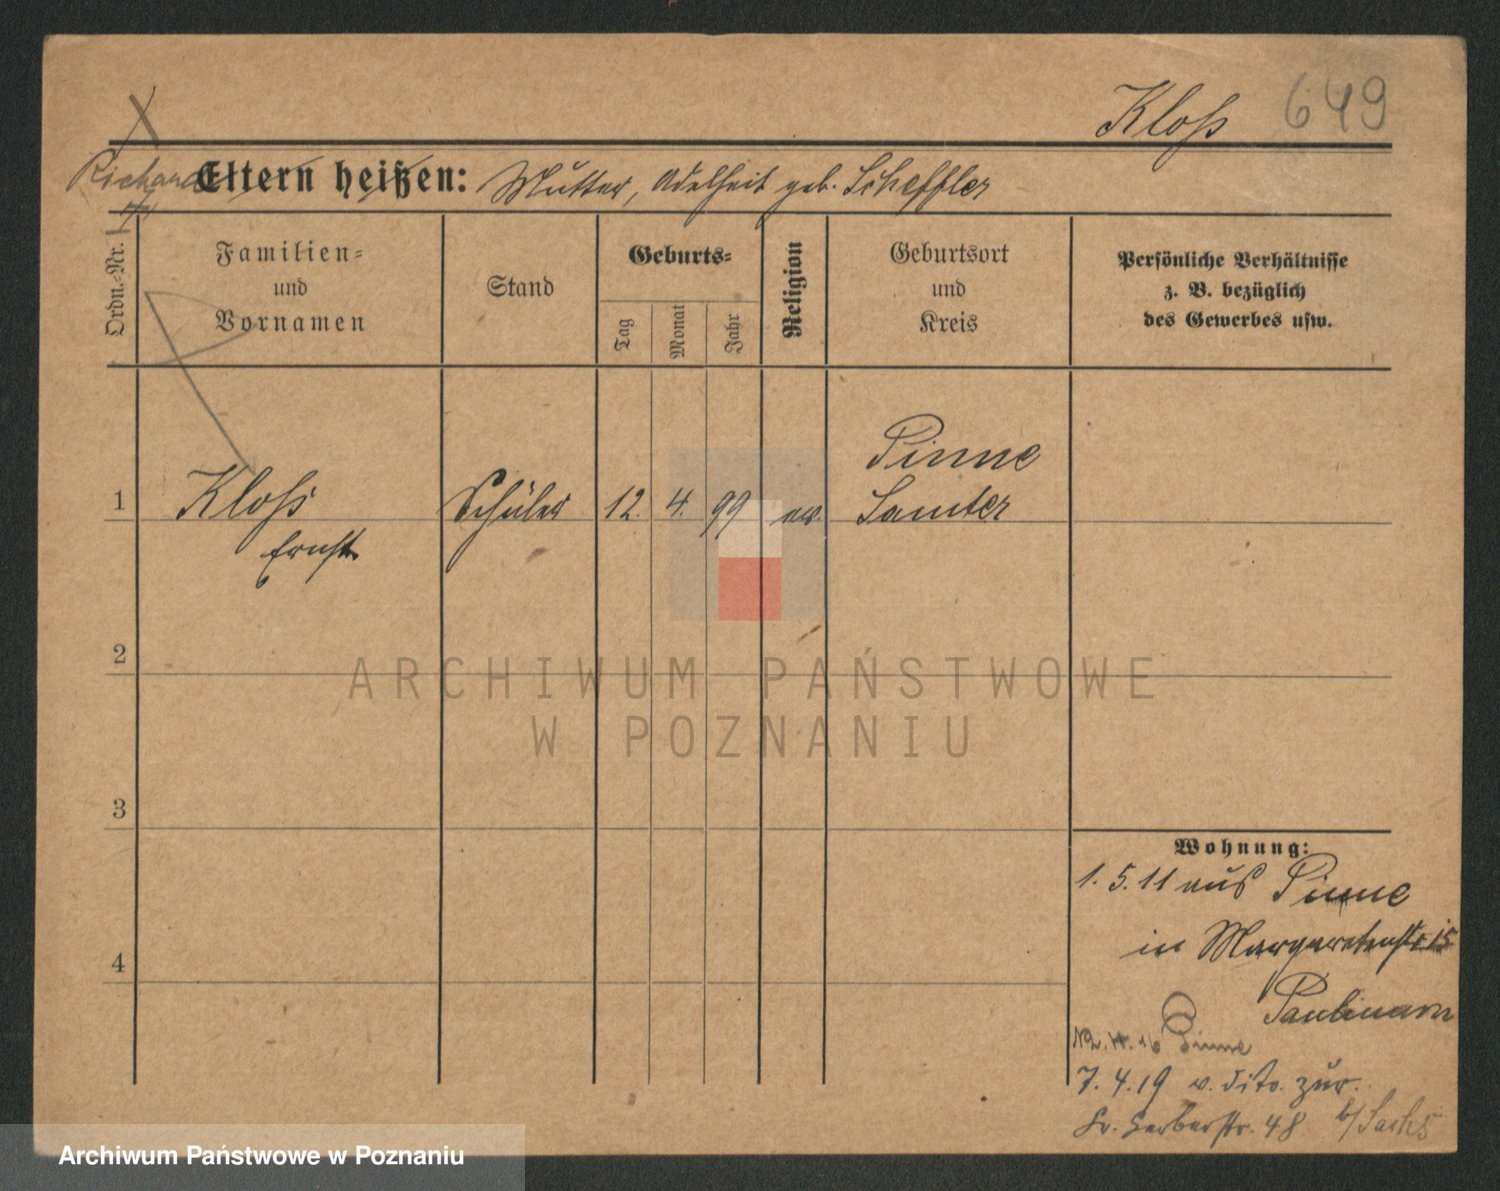 Kloß 649
Richard Eltern heißen: Mutter, Adelheit geb. Scheffler
Ordn.-Nr.
Familien-
und
Vornamen
Stand
Geburts-
Tag
Monat
Jahr
Religion
Geburtsort
und
Kreis
Persönliche Verhältnisse
z. B. bezüglich
des Gewerbes usw.
1 Kloß Schüler 12. 4. 99 ev. Pinne
Samter
Ernst
2
3
4
Wohnung:
1. 5. 11 aus Pinne
in Margaretenstr. 15
Paulmann
Pinne
7. 4. 19 v. dito. zur.
Gr. Gerberstr. 48 b/Sachs
ARCHIWUM PAŃSTWOWE
W POZNANIU
Archiwum Państwowe w Poznaniu